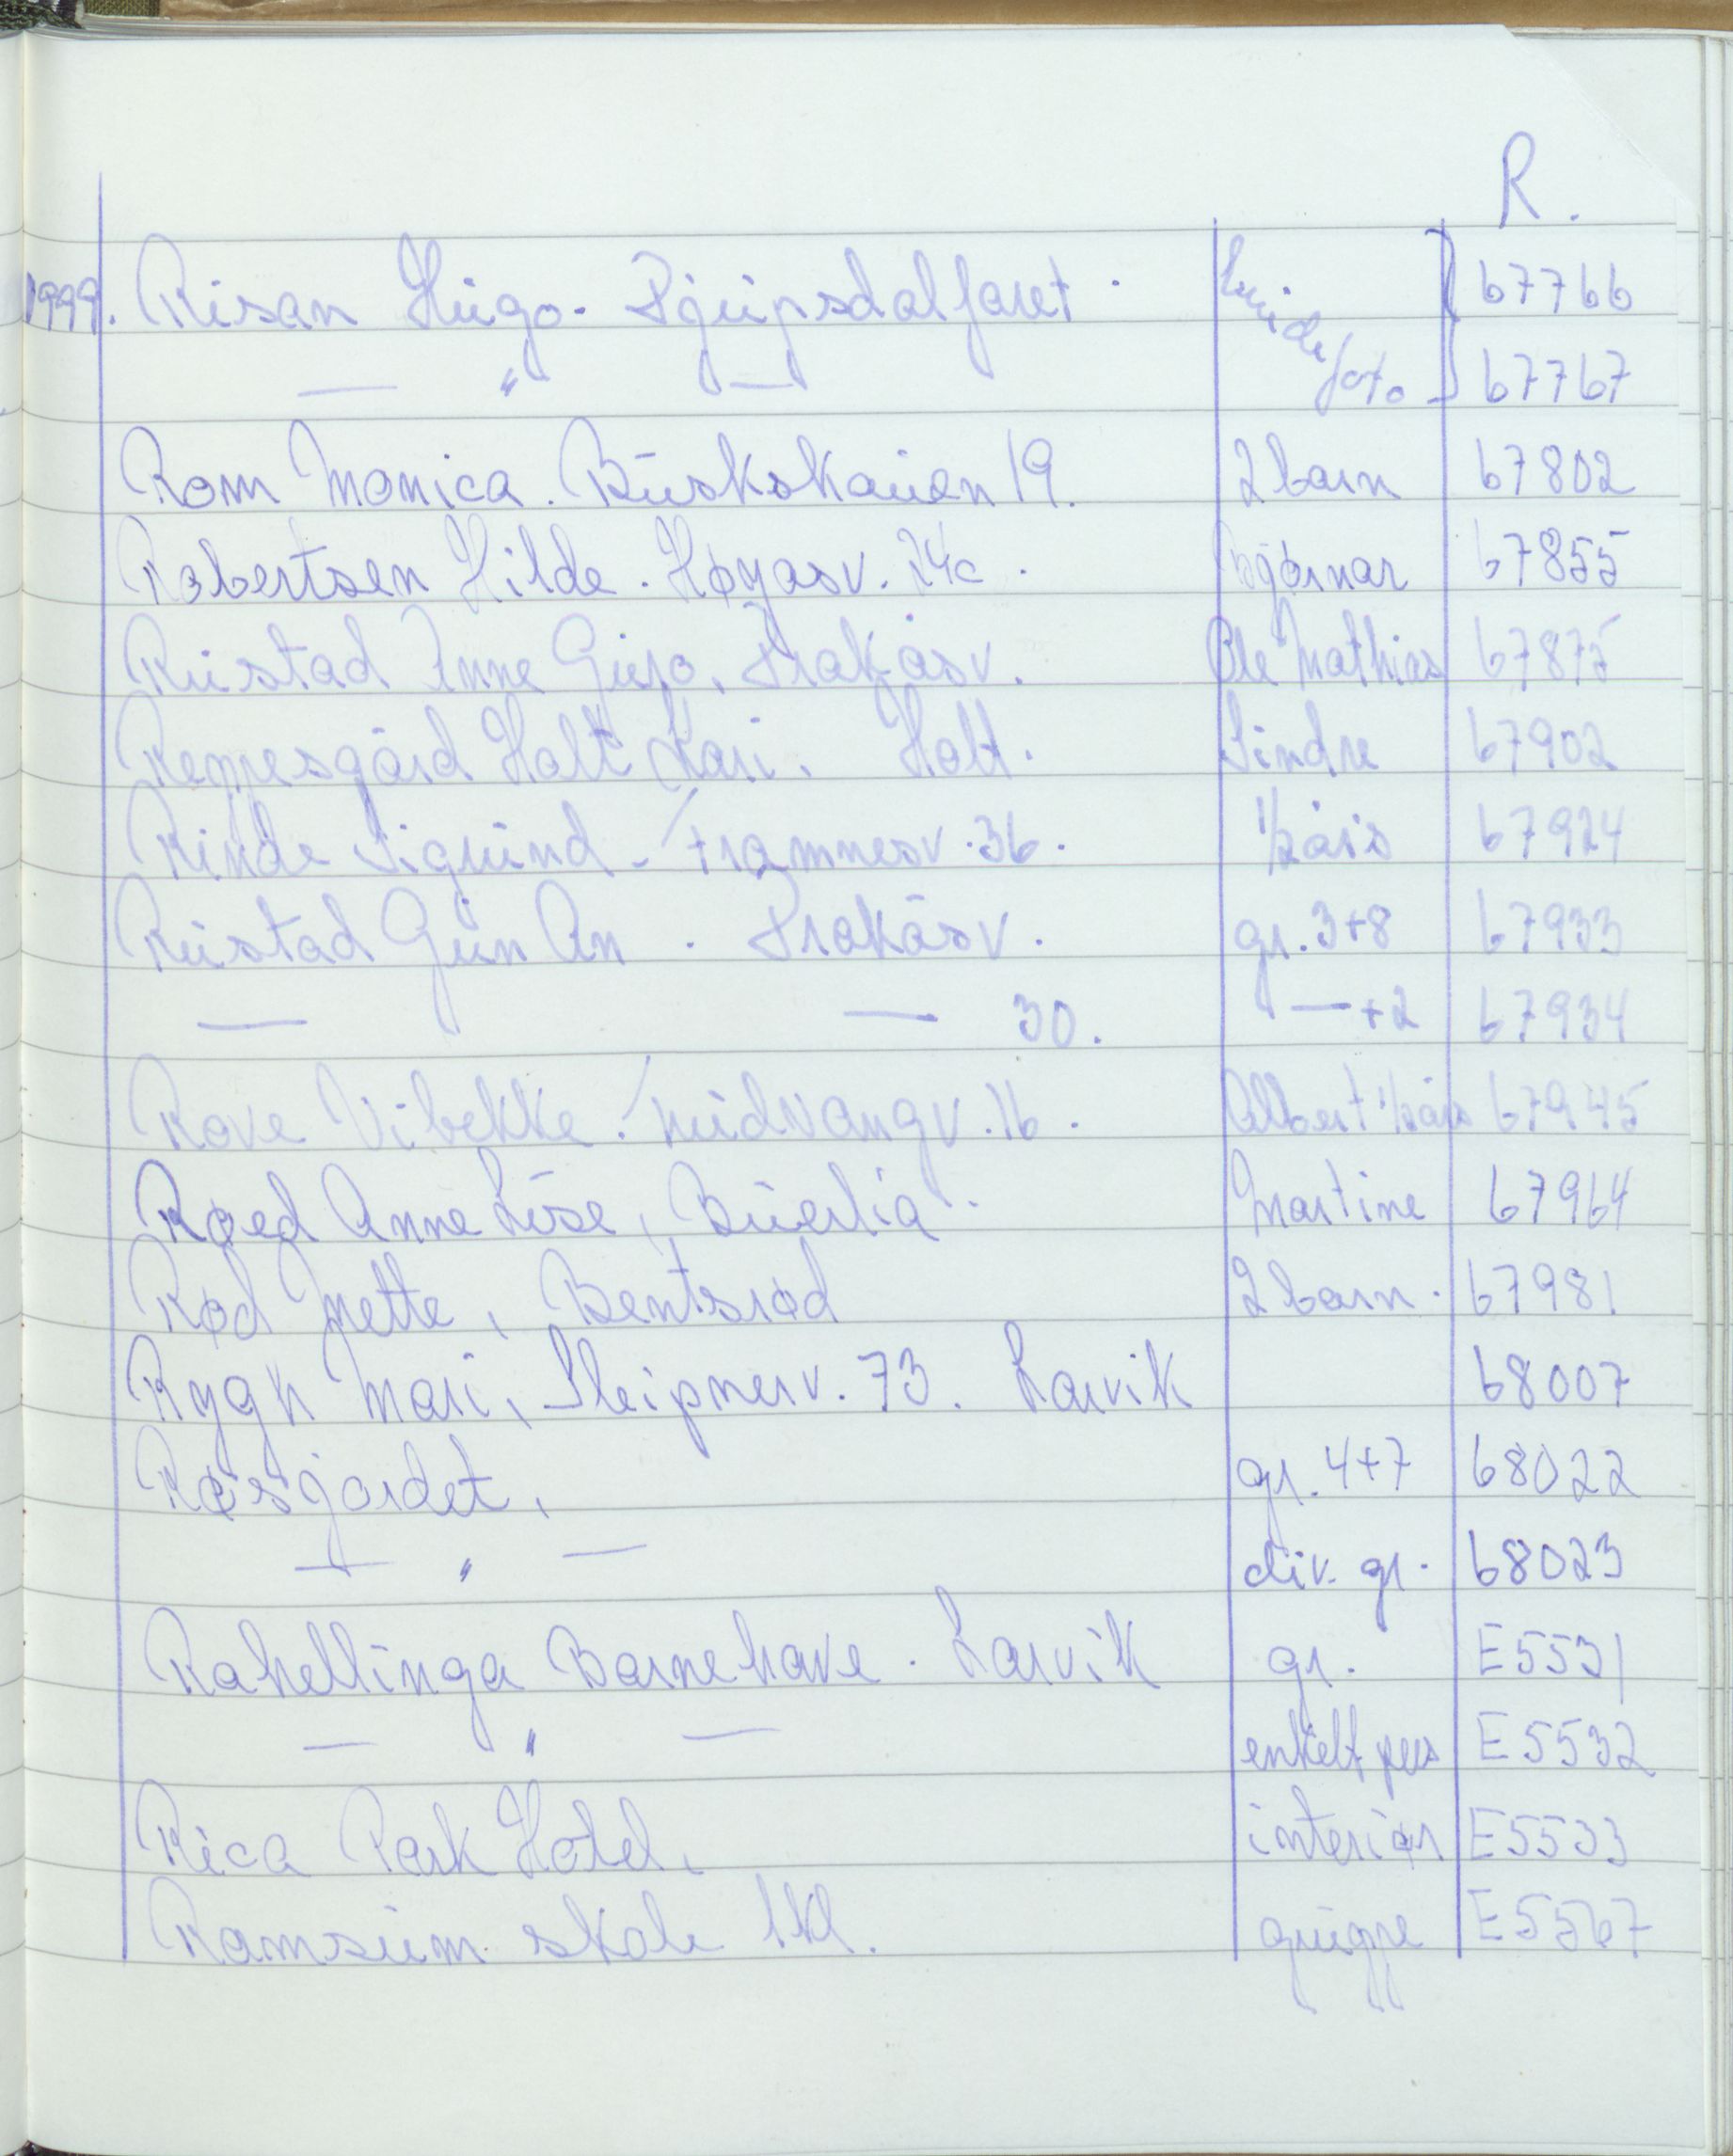 R.
1999. Risan Hugo. Djupsdalfaret. 67766
— " — foto 67767
Rom Monica. Buskskauen 19. 2 barn 67802
Robertsen Hilde. Høyåsv. 24c. Gjørmar 67855
Rustad Anne Guro, Prakåsv. Ole Mathias 67875
Holt Kari. Holt. Sindre 67902
Rinde Sigrund - Framnesv. 36. 1/2 års 67924
Rustad Gun An. Prakåsv. gr. 3+8 67933
— — 30. — +2 67934
Rove Vibekke. Midvangv. 16. Albert 1/2 års 67945
Røed Anne Lise, Buerlia. Martine 67964
Rød Mette, Bentsrød 2 barn. 67981
Rygh Mari, Sleipnerv. 73. Larvik 68007
Røsgjordet, gr. 4+7 68022
— " — div. gr. 68023
Rahellinga Barnehave. Larvik gr. E5531
— " — enkelt pers E5532
Rica Park Hotel, interiør E5533
Ramsum skole 1 kl. gruppe E5567